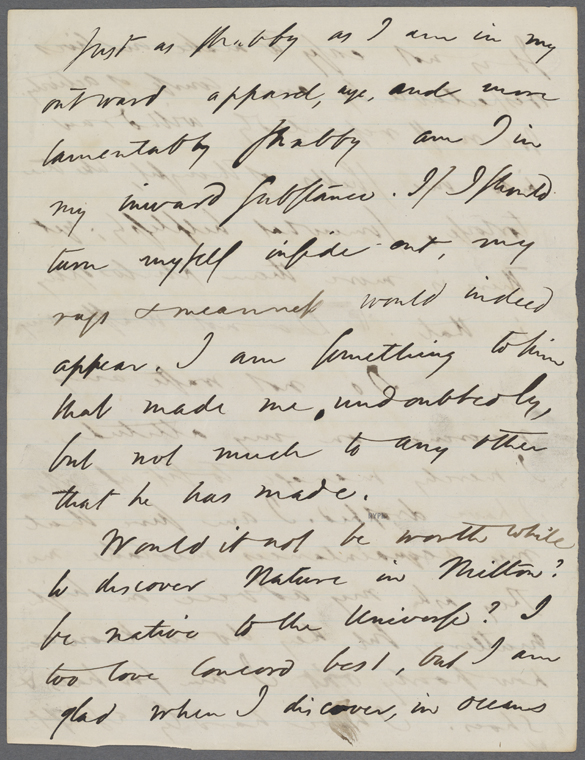 Just as shabby as I am in my
outward apparel, aye, and more
lamentably shabby am I in
my inward substance. If I should
turn myself inside out, my
rags & meanness would indeed
appear. I am something to him
that made me, undoubtedly,
but not much to any other
that he has made.
Would it not be worth while
to discover Nature in Milton?
be native to the Universe? I
too love Concord best, but I am
glad when I discover, in oceans